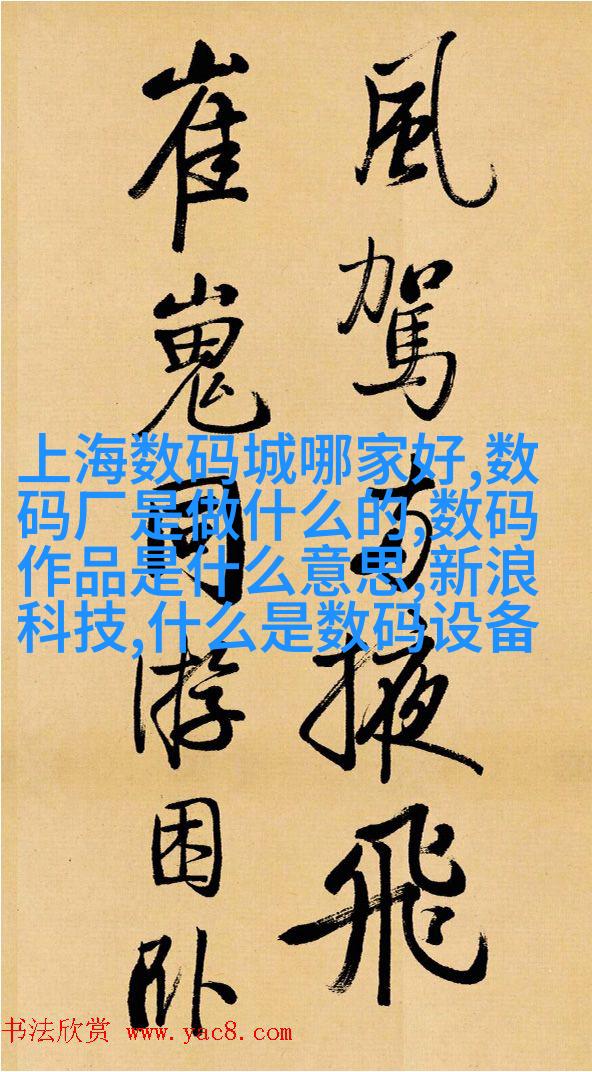 風駕兩掖飛
崔嵬周游困卧
上海数码城哪家好,数
码厂是做什么的,数码
作品是什么意思,新浪
科技,什么是数码设备
书法欣赏 www.yac8.com